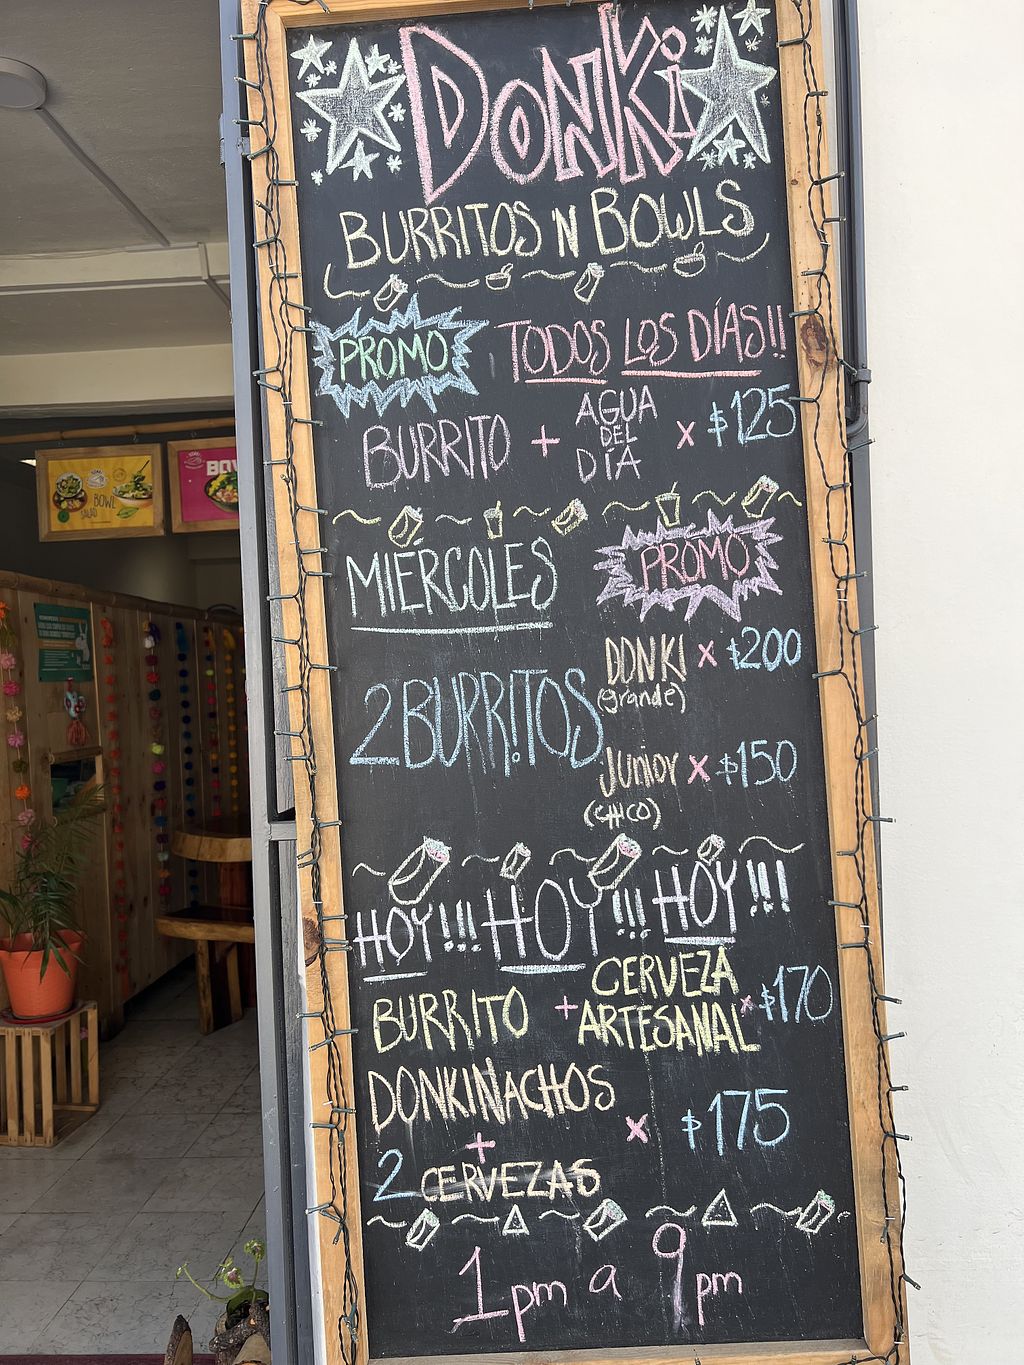 DONKi
BURRITOS 'N BOWLS
PROMO TODOS LOS DÍAS!!
BURRITO + AGUA DEL DÍA x $125
MIÉRCOLES PROMO
2 BURRITOS
DONKI x $200
(grande)
JUNIOR x $150
(CHICO)
HOY!!! HOY!!! HOY!!!
BURRITO + CERVEZA ARTESANAL x $170
DONKINACHOS
+
2 CERVEZAS
x $175
1pm a 9pm
BOWL
BOW